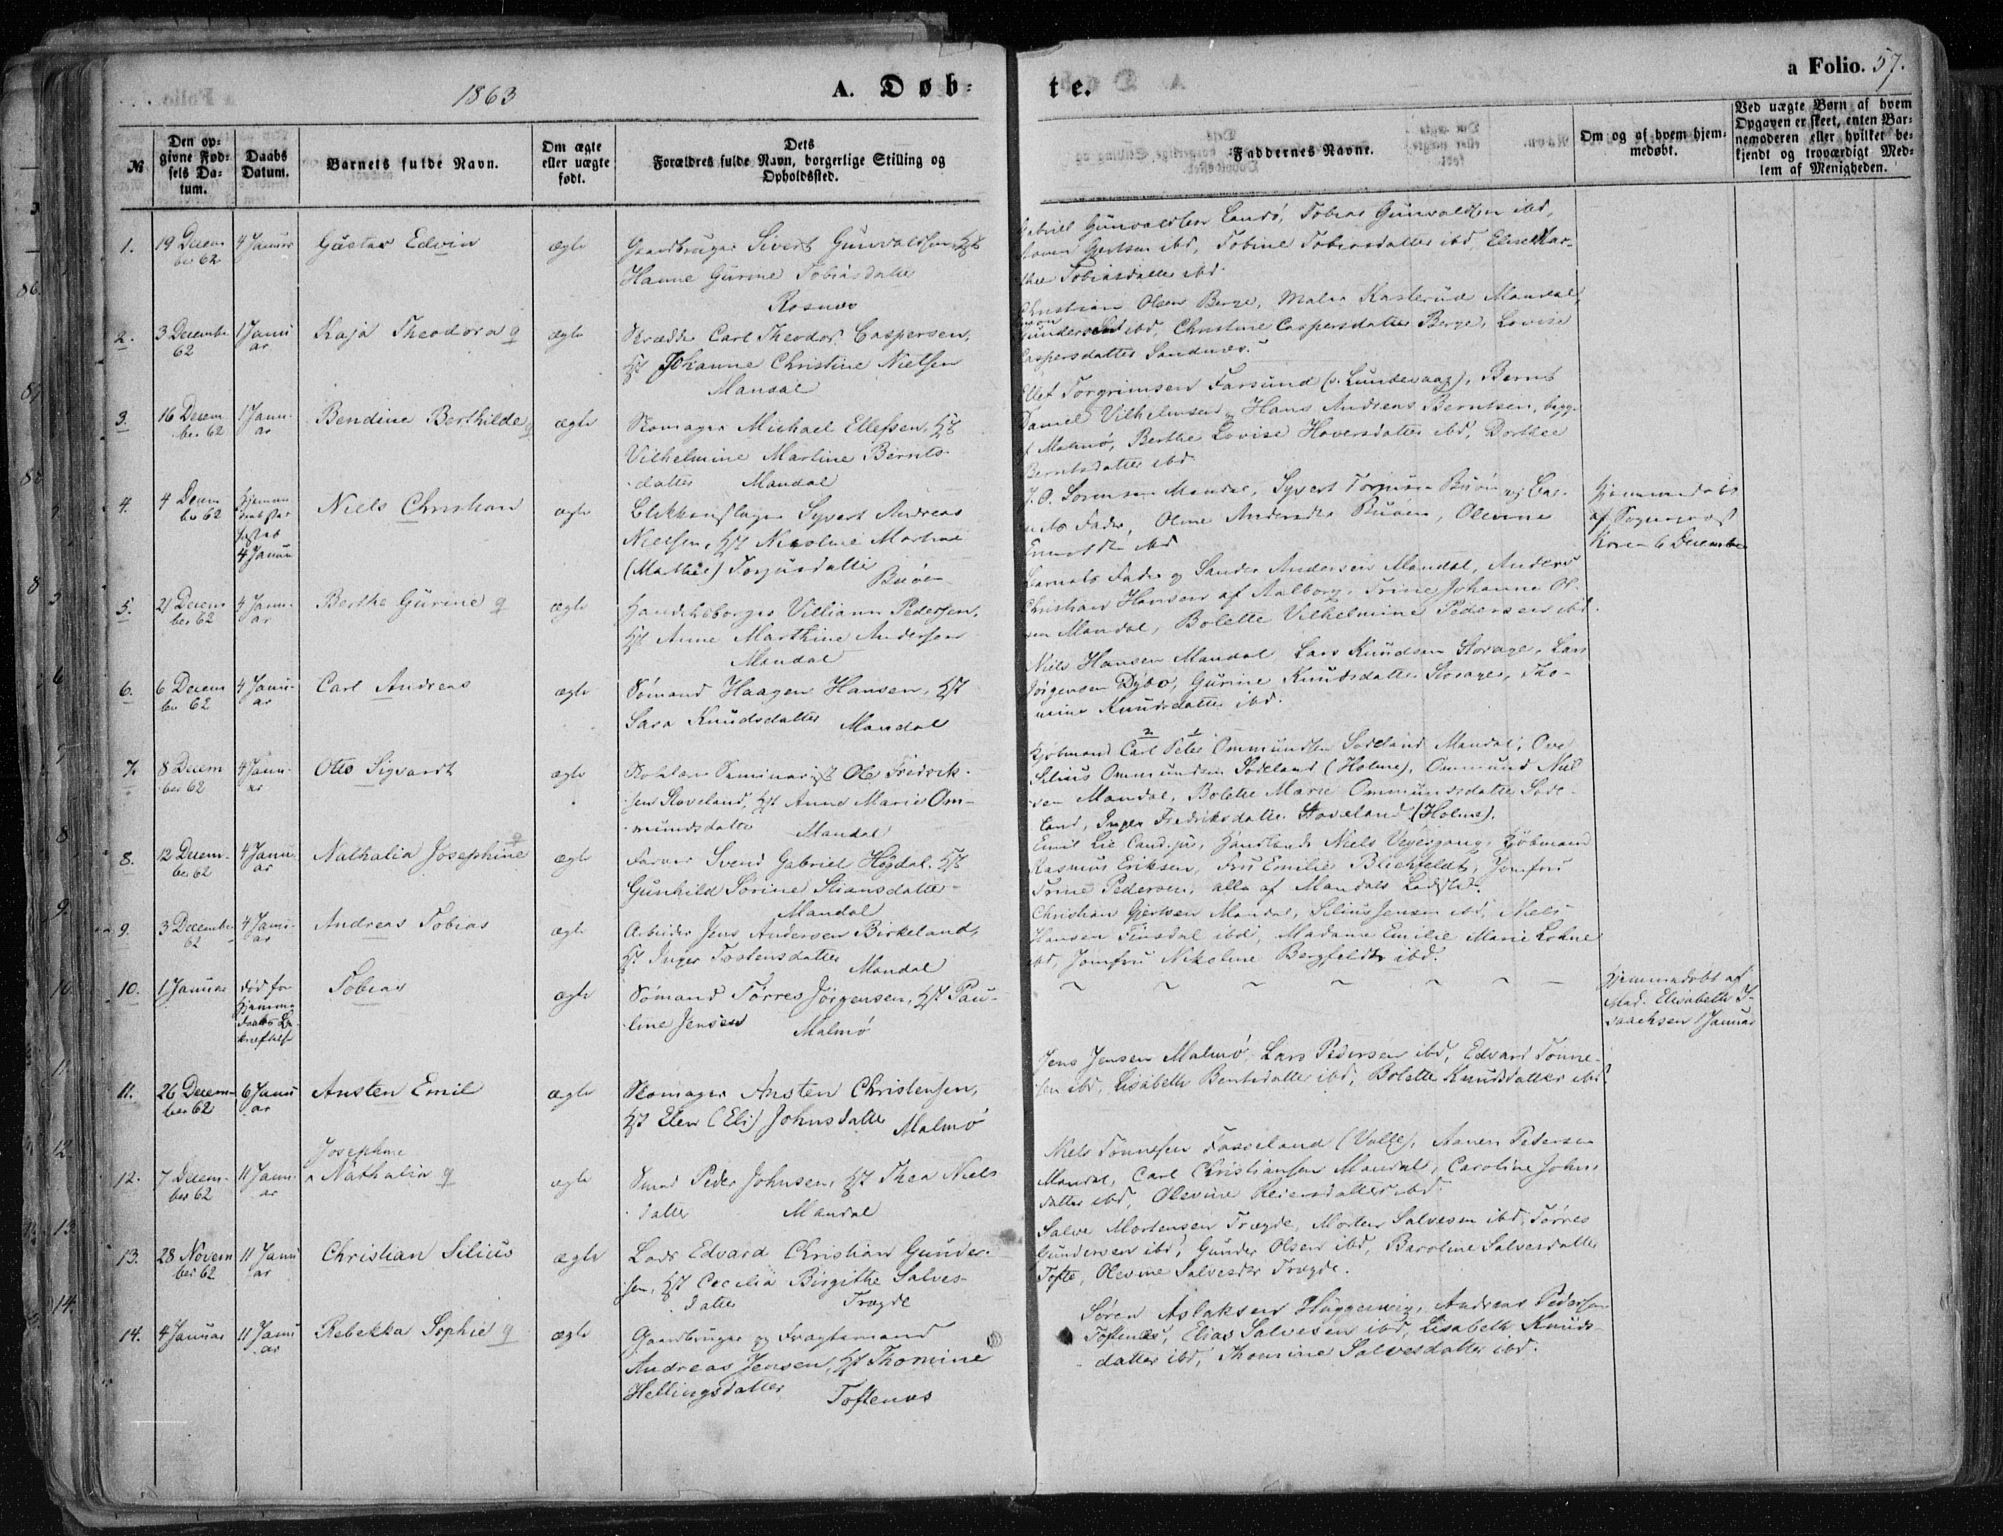 1863
A. Døb-
te.
a Folio. 57.
№
Den op-
givne Fød-
sels Da-
tum.
Daabs
Datum.
Barnets fulde Navn.
Om ægte
eller uægte
født.
Dets
Forældres fulde Navn, borgerlige Stilling og
Opholdssted.
Faddernes Navne.
Om og af hvem hjem-
medøbt.
Ved uægte Børn af hvem
Opgaven er skeet, enten Bar-
nemoderen eller hvilket be-
kjendt og troværdigt Med-
lem af Menigheden.
1.
19 Decem
ber 62
4 Januar
Gustav Edvin
ægte
Gaardbruger Sivert Gunvaldsen, Hst
Hanne Gurine Tobiasdatter
Rosnæs
Gabriel Gunvaldsen Landø, Tobias Gunvaldsen ibd,
Gjertsen ibd, Tobine Tobiasdatter ibd, Elise Mar-
thea Tobiasdatter ibd.
2.
3 Decembr
62
1 Janu
ar
Kaja Theodora
ægte
Skrædder Carl Theodor Caspersen,
Hst Johanne Christine Nielsen
Mandal
Christian Olsen Berge, Malea Kasterud Mandal,
Gundersen ibd, Christine Caspersdatter Berge, Lovise
Caspersdatter Sandnæs.
3.
16 Decem
ber 62
1 Janu-
ar
Bendine Berthilde
ægte
Skomager Michael Ellefsen, Hst
Vilhelmine Martine Bernts-
datter Mandal
Ellef Torgrimsen Farsund (v. Lundevaag), Bernt
Daniel Vilhelmsen, Hans Andreas Berntsen, begge
af Malmø, Berthe Lovise Hoversdatter ibd, Dorthea
Berntsdatter ibd
4.
4 Decm
ber 62
Hjemme
daab stad
fæstet
4 Januar
Niels Christian
ægte
Blikkenslager Syvert Andreas
Nielsen, Hst Nicoline Martine
(Mathea) Torjusdatter
Buøen
J. O. Sørensen Mandal, Syvert Buøen og Bar-
nets Fader, Oline Andersdtr Buøen, Olevine
ibd
Hjemmedøbt
af Sognepræst
Koren 6 December
5.
21 Decem
ber 62
4 Janu-
ar
Berthe Gurine
ægte
Handelsborger Villiam Pedersen,
Hst Anne Marthine Andersen
Mandal
Barnets Fader og Sander Andersen Mandal, Anders
Christian Hansen af Aalborg, Trine Johanne Ol-
sen Mandal, Bolette Vilhelmine Pedersen ibd.
6.
6 Decem
ber 62
4 Janu-
ar
Carl Andreas
ægte
Sømand Haagen Hansen, Hst
Sara Knudsdatter Mandal
Niels Hansen Mandal, Lars Knudsen Storage, Lars
Jørgensen Dybo, Gurine Knudsdatter Storage, Tho-
mine Knudsdatter ibd.
7.
8 Decem
ber 62
4 Janu-
ar
Otto Sigvardt
ægte
Skolelærer Seminarist Ole Fredrik-
sen Stoveland, Hst Anne Marie Om-
mundsdatter Mandal
Kjøbmand Carl Peter Ommundsen Sodeland Mandal, Ove
Silius Ommundsen Sodeland (Holme), Ommund Niel
sen Mandal, Bolette Marie Ommundsdatter Sode-
land, Inger Fredriksdatter Stoveland (Holme).
8.
12 Decem-
ber 62
4 Janu-
ar
Nathalia Josephine
ægte
Farver Svend Gabriel Høgdal, Hst
Gunhild Sørine Stiansdatter
Mandal
Emil Lie Cand. jur, Handlende Niels Vejergang, Kjøbmand
Rasmus Eriksen, Fru Emilie Blichfeldt, Jomfru
Trine Pedersen, alle af Mandals Ladsted.
9.
3 December
62
4 Janu-
ar
Andreas Tobias
ægte
Arbeider Jens Andersen Birkeland,
Hst Inger Tostensdatter Mandal
Christian Gjertsen Mandal, Silius Jensen ibd, Niels
Hansen Tinsdal ibd, Madame Emilie Marie Lohne
ibd, Jomfru Nikoline Bergfeldt ibd.
10.
1 Januar
død før
Hjemme
daabs Be-
kræftelse
Tobias
ægte
Sømand Tørres Jørgensen, Hst Pau-
line Jensen Malmø
Hjemmedøbt af
Mad. Elisabeth I-
saachsen 1 Januar
11.
26 Decem-
ber 62
6 Janu
ar
Ansten Emil
ægte
Skomager Ansten Christensen,
Hst Elen (Eli) Johnsdatter Malmø
Jens Jensen Malmø, Lars Pedersen ibd, Edvard Tønne-
sen ibd, Lisabeth Berntsdatter ibd, Bolette Knudsdatter ibd
12.
7 Decem-
ber 62
11 Janu-
ar
Josephine
Nathalia
ægte
Smed Peder Johnsen, Hst Thea Niels
datter Mandal
Niels Tønnesen Fasseland (Valle), Aanen Pedersen
Mandal, Carl Christiansen Mandal, Caroline Johns
datter ibd, Olevine Reiersdatter ibd.
13.
28 Novem
ber 62
11 Janu
ar
Christian Silius
ægte
Lods Edvard Christian Gunder-
sen, Hst Cecilia Birgithe Salves-
datter Trægde
Salve Mortensen Trægde, Morten Salvesen ibd, Tørres
Gundersen ibd, Gunder Olsen ibd, Baroline Salvesdatter
Tofte, Olevine Salvesdtr Trægde.
14.
4 Januar
11 Janu
ar
Rebekka Sophie
ægte
Gaardbruger og Fragtemand
Andreas Jensen, Hst Thomine
Hellingsdatter Toftenæs
Søren Aslaksen Huggenvig, Andreas Pedersen
Toftenæs, Elias Salvesen ibd, Lisabeth Knuds-
datter ibd, Thomine Salvesdatter ibd.